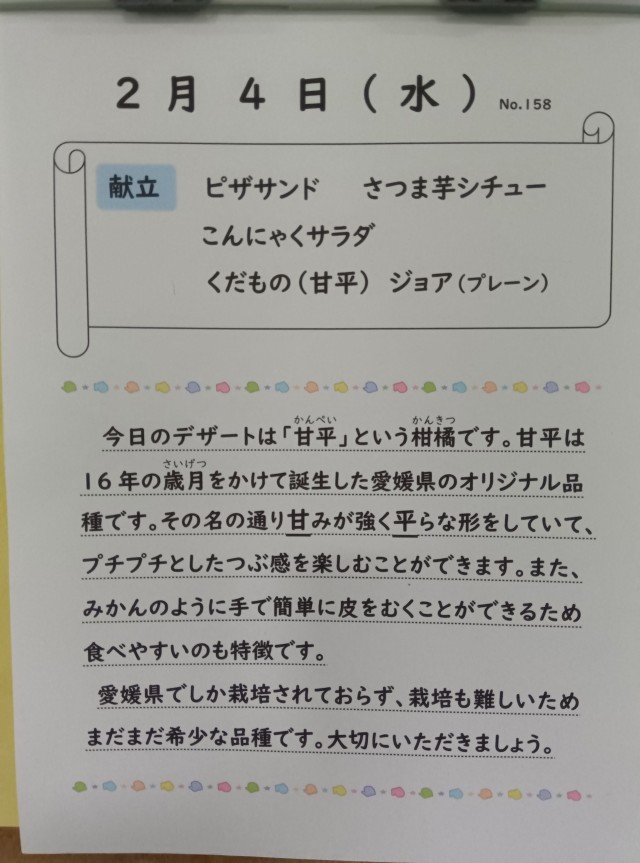 2月4日(水) No.158
献立 ピザサンド さつま芋シチュー
こんにゃくサラダ
くだもの(甘平) ジョア(プレーン)
かんぺい かんきつ
今日のデザートは「甘平」という柑橘です。甘平は
さいげつ
16年の歳月をかけて誕生した愛媛県のオリジナル品
種です。その名の通り甘みが強く平らな形をしていて、
プチプチとしたつぶ感を楽しむことができます。また、
みかんのように手で簡単に皮をむくことができるため
食べやすいのも特徴です。
愛媛県でしか栽培されておらず、栽培も難しいため
まだまだ希少な品種です。大切にいただきましょう。